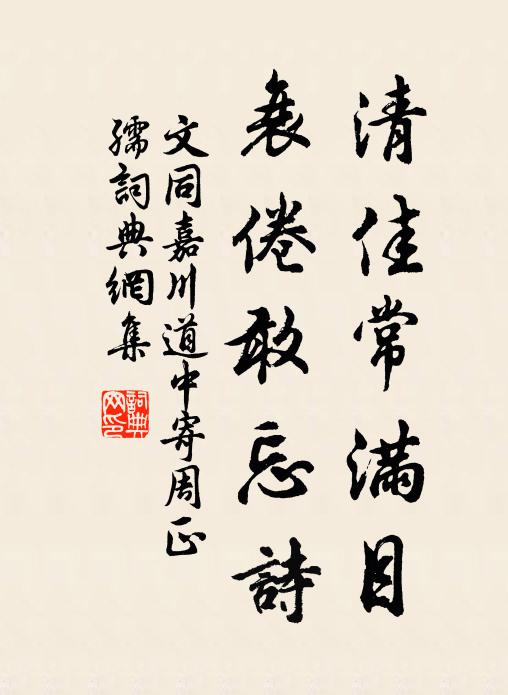 清佳常滿目
衰倦敢忘詩
文同嘉川道中寄周正
孺詞典網集
詞典
网印